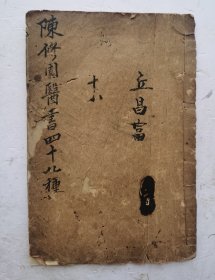 陳修園醫書四十八種
十八
丘昌富